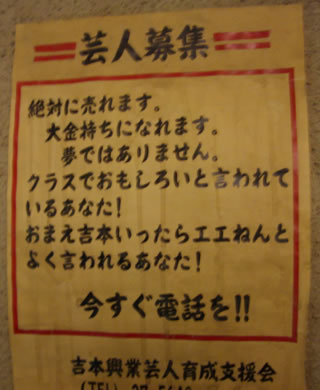 芸人募集
絶対に売れます。
大金持ちになれます。
夢ではありません。
クラスでおもしろいと言われて
いるあなた!
おまえ吉本いったらエエねんと
よく言われるあなた!
今すぐ電話を!!
吉本興業芸人育成支援会
(TEL)